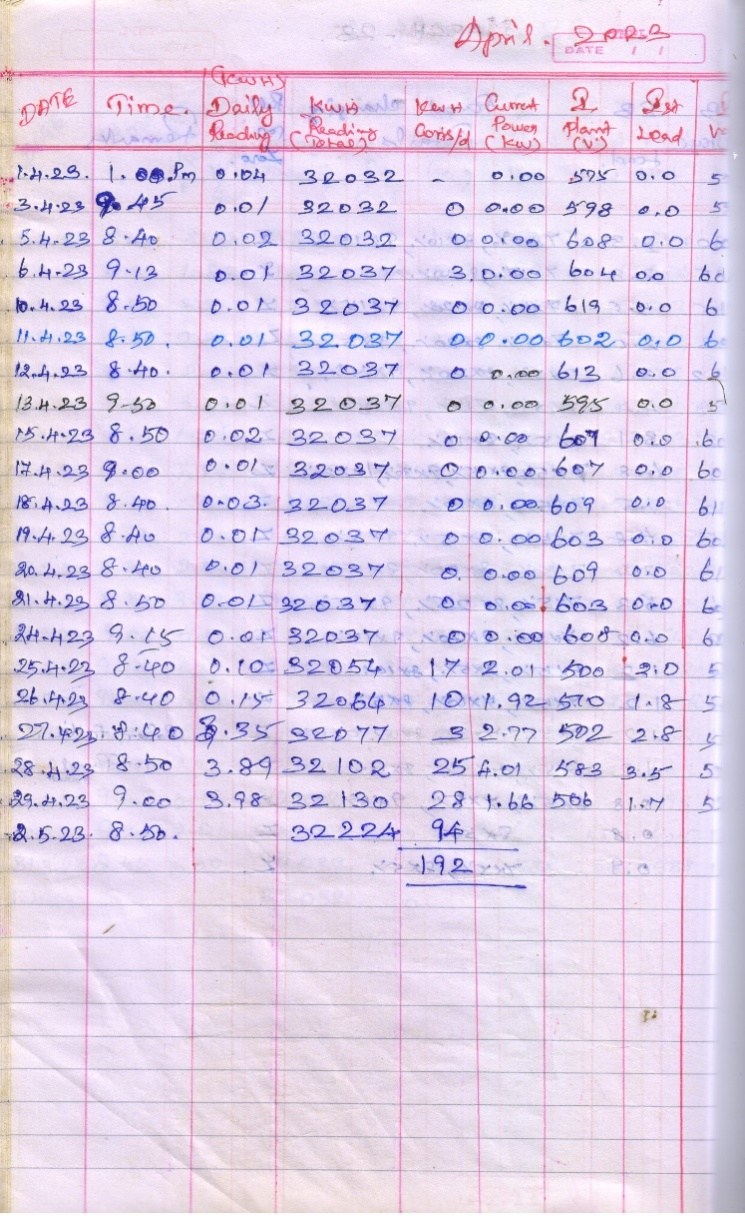 April. 2023
DATE / /
DATE Time. (KWH) Daily Reading KWH Reading (Total) KWH Cons/d Current Power (KW) I Plant (V) Ist Load V
1.4.23. 1.00.Pm 0.04 32032 - 0.00 575 0.0 5
3.4.23 9.45 0.01 32032 0 0.00 598 0.0 5
5.4.23 8.40 0.02 32032 0 0.00 608 0.0 6
6.4.23 9.13 0.01 32037 3 0.00 604 0.0 60
10.4.23 8.50 0.01 32037 0 0.00 619 0.0 6
11.4.23 8.50. 0.01 32037 0 0.00 602 0.0 6
12.4.23 8.40. 0.01 32037 0 0.00 613 0.0 6
13.4.23 9-50 0.01 32037 0 0.00 595 0.0 5
15.4.23 8.50 0.02 32037 0 0.00 607 0.0 6
17.4.23 9.00 0.01 32037 0 0.00 607 0.0 60
18.4.23 8.40. 0.03. 32037 0 0.00 609 0.0 61
19.4.23 8.40 0.01 32037 0 0.00 603 0.0 60
20.4.23 8.40 0.01 32037 0. 0.00 609 0.0 6
21.4.23 8.50 0.01 32037 0 0.00 603 0.0 6
24.4.23 9.15 0.01 32037 0 0.00 608 0.0 6
25.4.23 8.40 0.10 32054 17 2.01 500 2.0 5
26.4.23 8.40 0.15 32064 10 1.92 570 1.8 5
27.4.23 8.40 3.35 32077 3 2.77 502 2.8 5
28.4.23 8.50 3.89 32102 25 4.01 583 3.5 5
29.4.23 9.00 3.98 32130 28 1.66 506 1.7 5
2.5.23. 8.50. 32224 94
192